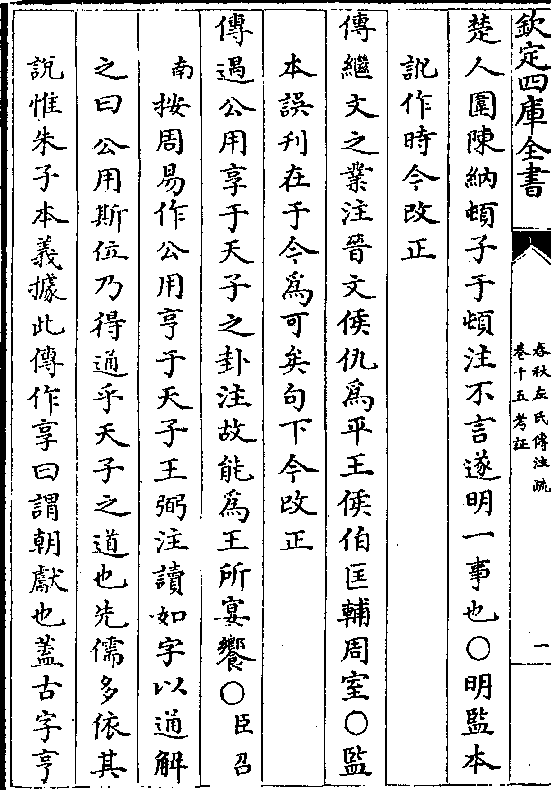 欽定四庫全書
春秋左氏傳注疏
卷十五考証
一
楚人圍陳納頓子于頓注不言遂明一事也○明監本
訛作時今改正
傳繼文之業注晉文侯仇為平王侯伯匡輔周室○監
本誤刊在于今為可矣句下今改正
傳遇公用享于天子之卦注故能為王所宴饗○臣召
南按周易作公用亨于天子王弼注讀如字以通解
之曰公用斯位乃得通乎天子之道也先儒多依其
說惟朱子本義據此傳作享曰謂朝獻也蓋古字亨